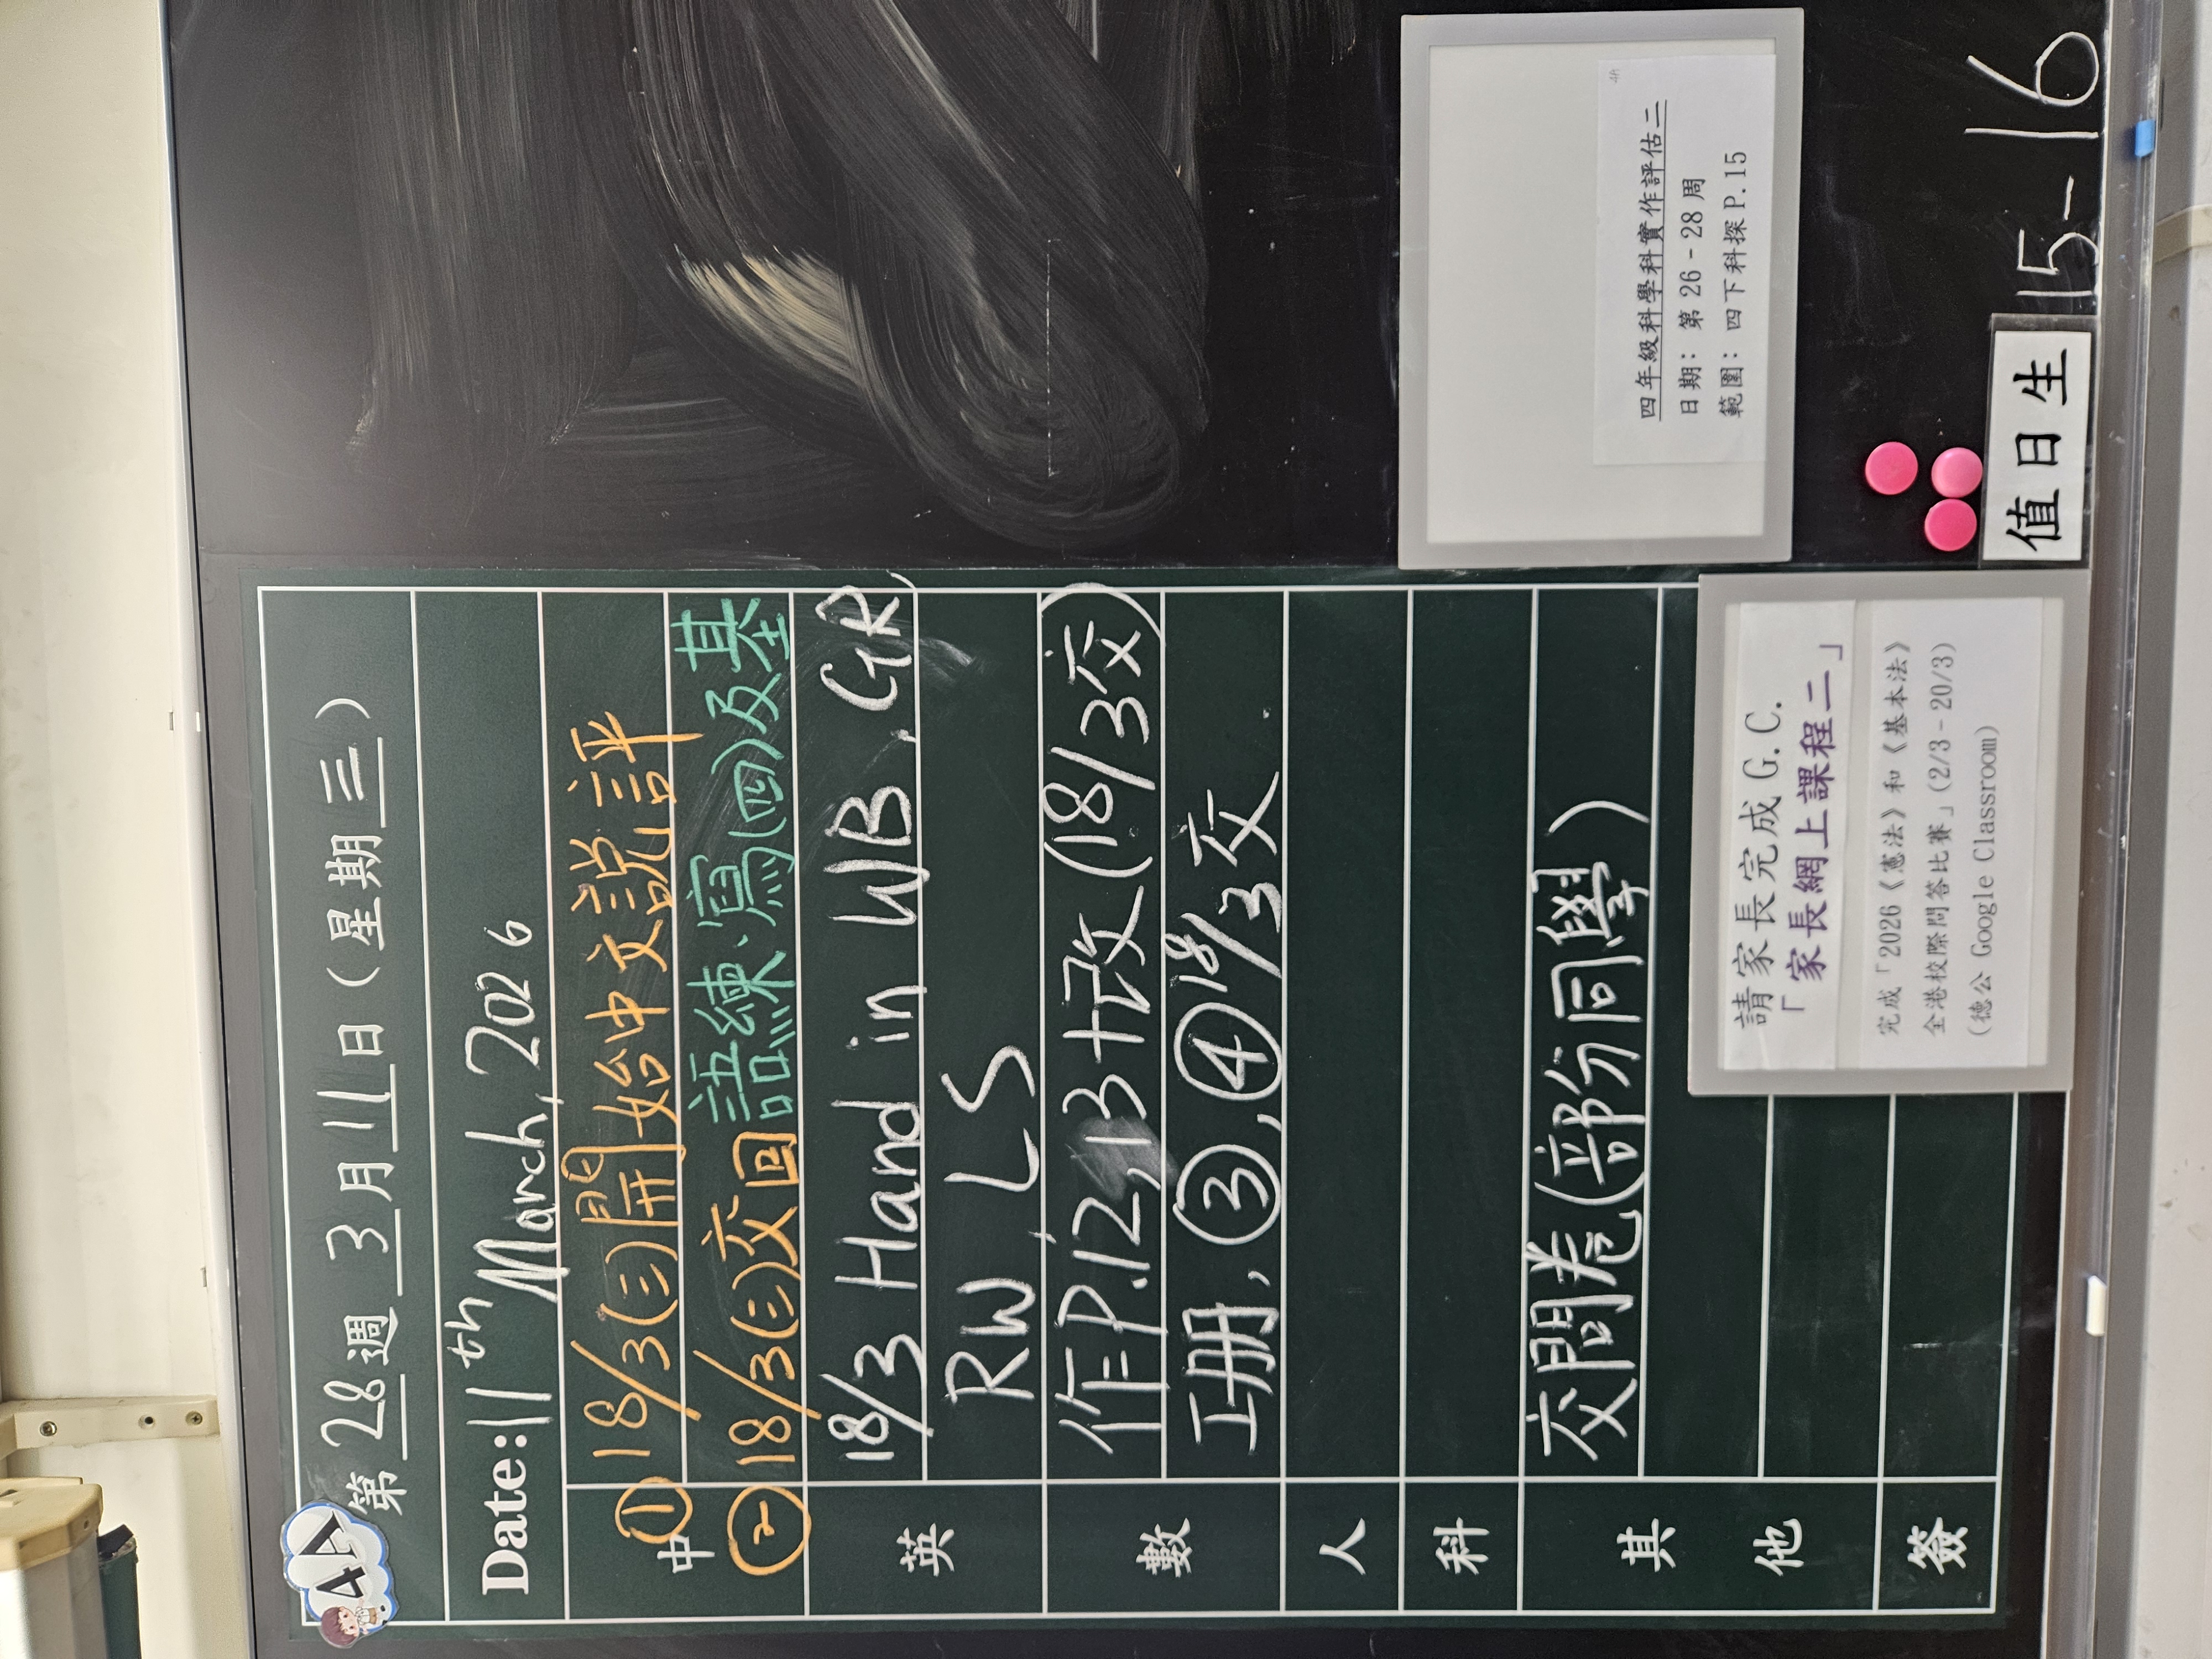 4A
第 28 週 3 月 11 日 (星期 三 )
Date: 11th March, 2026
中
① 18/3(三)開始中文說評
② 18/3(三)交回語練、寫(四)及基
英
18/3 Hand in WB, GR,
RW, LS
數
作=P.12,13+改(18/3交)
工册, ③, ④ 18/3交
人
科
其他
交問卷(部分同學)
簽
請家長完成 G.C.
「家長網上課程二」
完成「2026《憲法》和《基本法》
全港校際問答比賽」(2/3-20/3)
(德公 Google Classroom)
4A
四年級科學科實作評估二
日期: 第 26-28 周
範圍: 四下科探 P.15
值日生 15-16